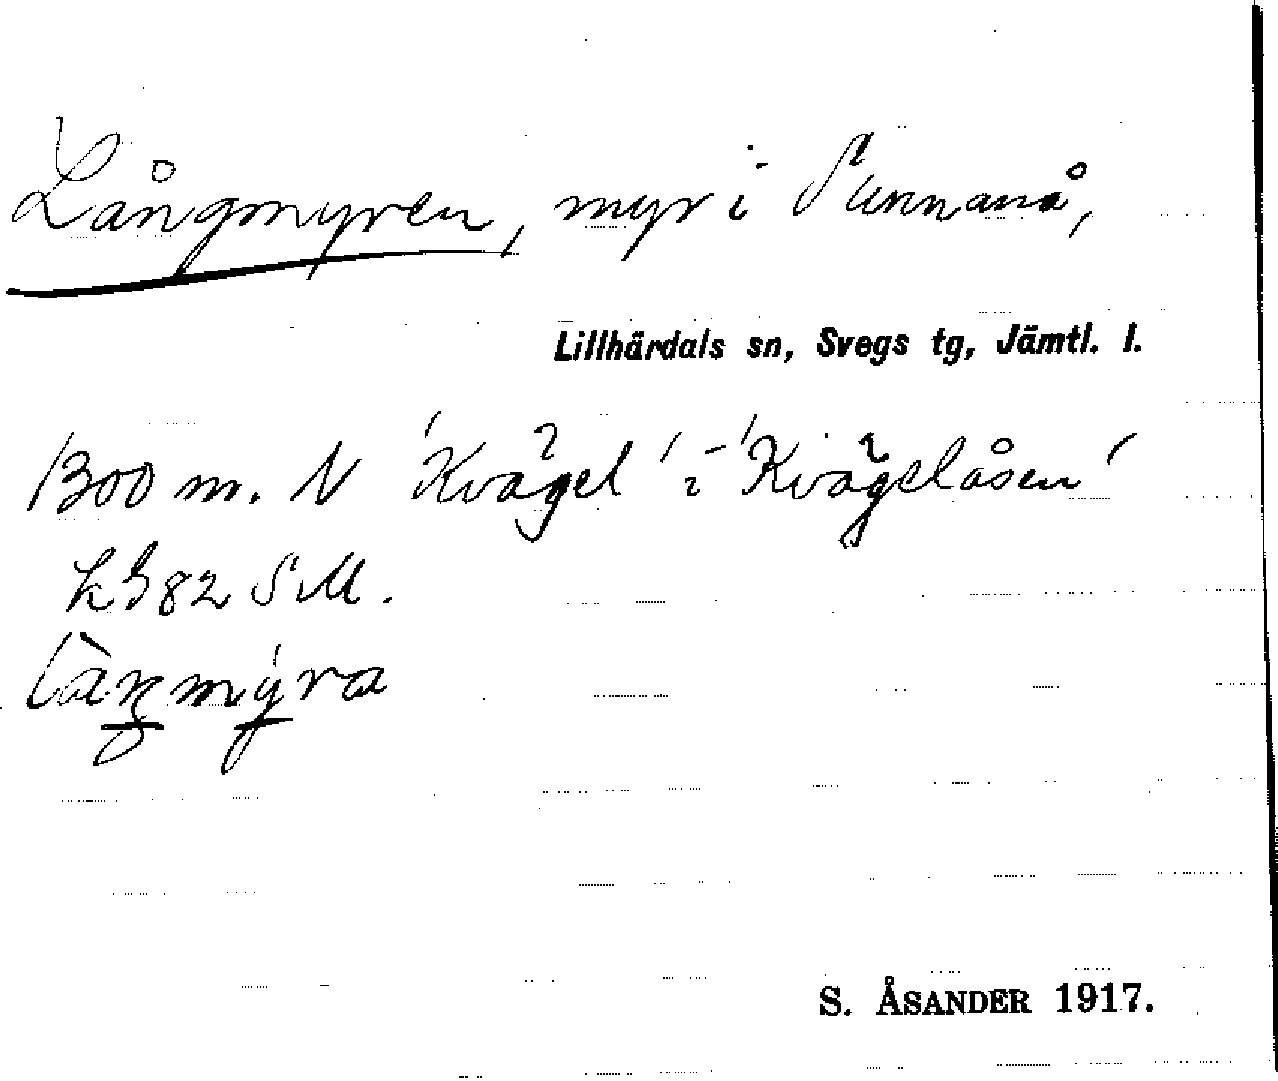 Långmyren, myr i Sunnanå,
Lillhärdals sn, Svegs tg, Jämtl. l.
1300 m. N 'Kvägel' i 'Kvägelåsen'
82 SM.
làŋmýra
S. ÅSANDER 1917.